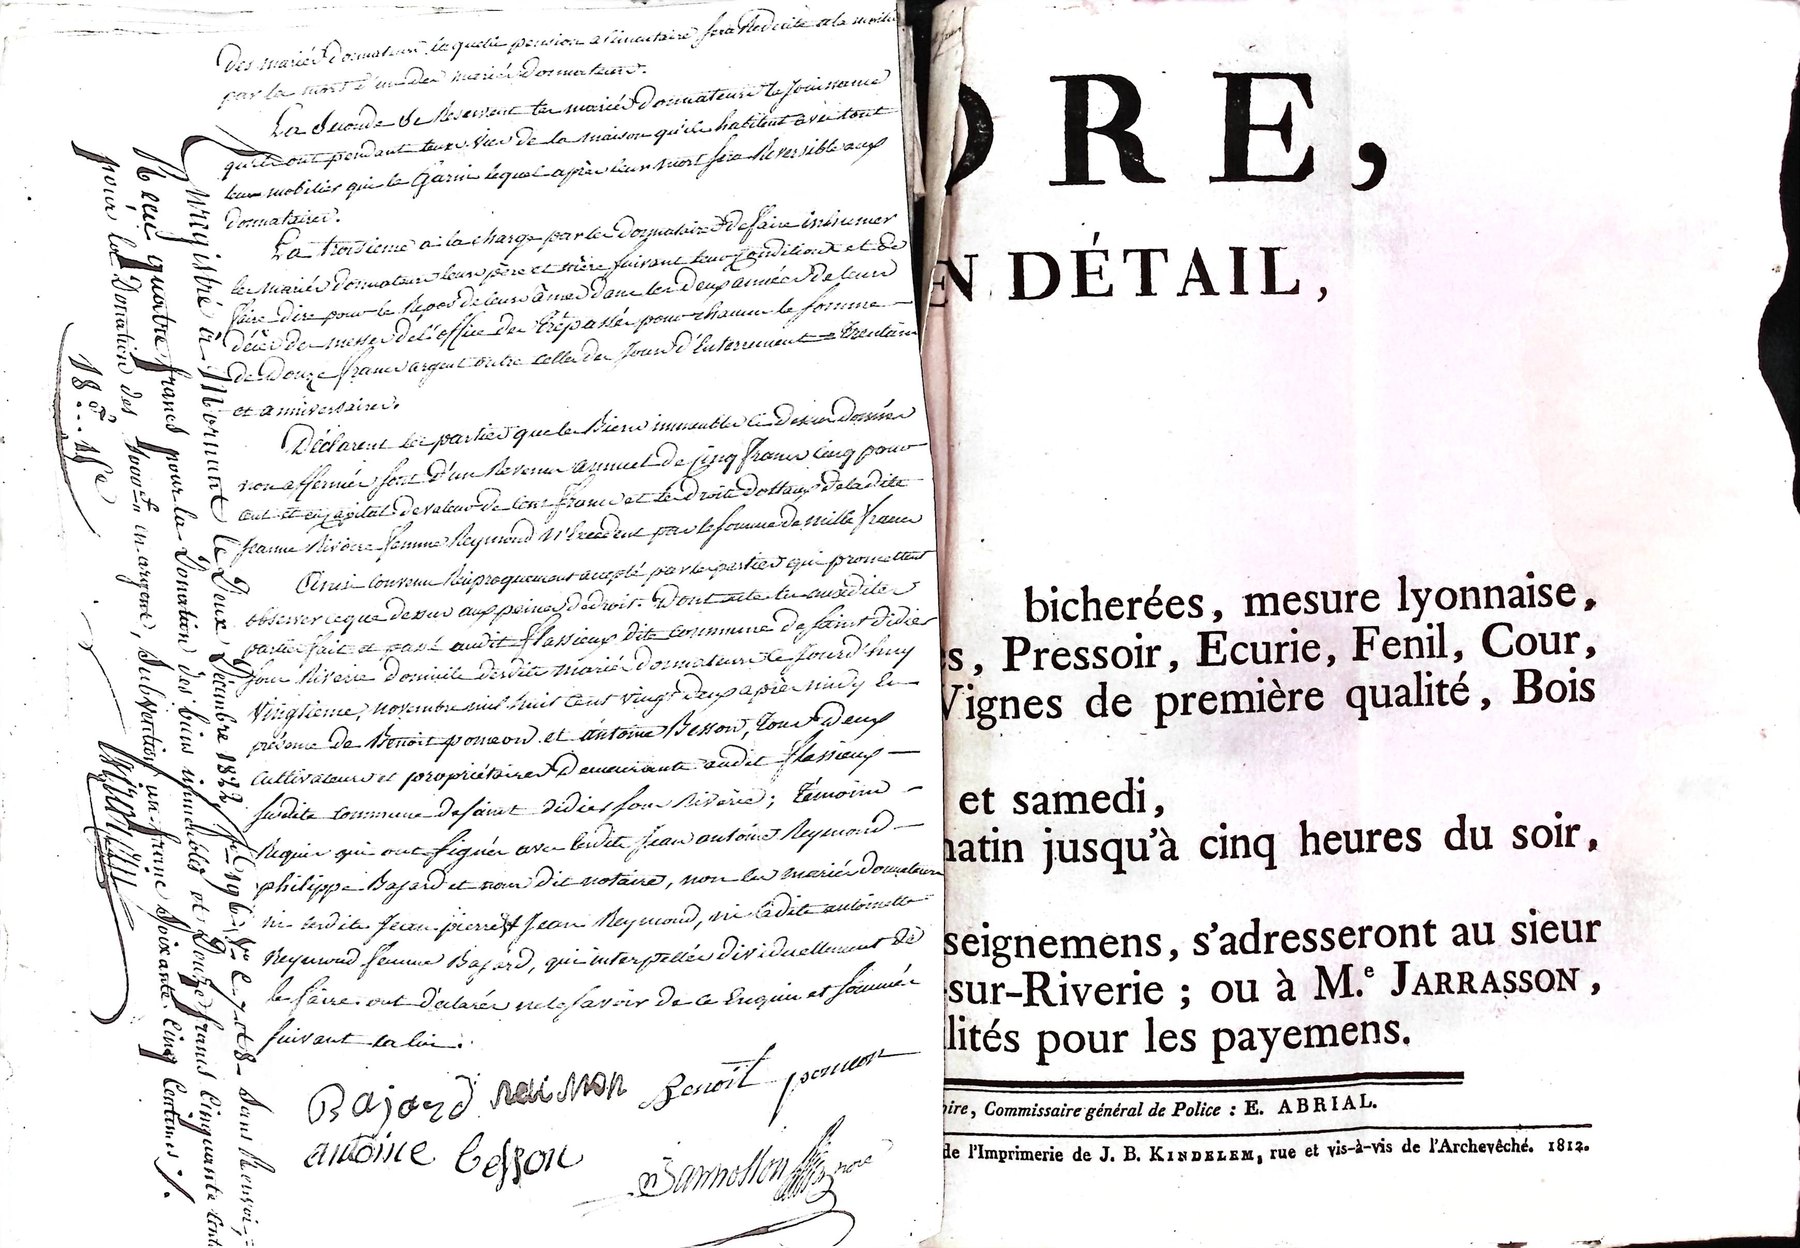 des mariés donnateurs, laquelle pension alimentaire sera Reduite a la moitié
par la mort d'un des mariés donnateurs.
La seconde se Reservent les mariés donnateurs le jouissance
qu'ils ont pendant leurs vies de la maison qu'ils habitent avec tout
leur mobilier qui le Garni lequel après leur mort sera Reversible aux
donnataires.
La troisieme a la charge par les donnataires de faire inhumer
les mariés donnateurs leurs père et mère suivant leur conditions et de
faire dire pour le Repos de leurs âmes dans les deux années de leur
décès des messes de l'office des trépassés pour chacun le somme
de Douze francs argent outre celles des jours d'Enterrement Trentain
et anniversaires.
Déclarent les parties que les Biens immeubles ci dessus donnés
non affermés sont d'un Revenu annuel de cinq francs cinq pour
cent et en capital de valeur de cent francs et les droits dottaux de ladite
jeanne Rivoire femme Reymond N'Excedent pas le somme de mille francs
Ainsi convenu Reciproquement accepté par les parties qui promettent
observer ce que dessus aux peines de droit. Dont acte les susdites
parties fait et passé audit Flassieux dite commune de saint didier
sous Riverie domicile desdits mariés donnateurs ce jourd'huy
vingtieme, novembre mil huit cent vingt deux après midy En
présence de Benoit ponson et antoine Besson, tous deux
cultivateurs et propriétaires demeurants audit Flassieux
susdite commune de saint didier sous Riverie; témoins
Requis qui ont signés avec lesdits jean antoine Reymond
philippe Bajard et nous dit notaire, non les mariés donnateurs
ni lesdits jean pierre et jean Reymond, ni ladite antoinette
Reymond femme Bajard, qui interpellés dividuellement de
le faire ont déclarés ne le savoir de ce Enquis et sommés
suivant la loi.
Bajard reimon Benoit ponson
antoine besson
Jannosson nore
Enregistré à Mornant le Deux Décembre 1822, fo 196 Vo C. 7 et 8 Sans Renvoi,
Reçu quatre francs pour la Donation des biens immeubles et Douze francs cinquante cent
pour les Donation des Sommes en argent, Subvention un franc Soixante cinq centimes
18..15c
ORE,
EN DÉTAIL,
bicherées, mesure lyonnaise,
es, Pressoir, Ecurie, Fenil, Cour,
Vignes de première qualité, Bois
et samedi,
matin jusqu'à cinq heures du soir,
seignemens, s'adresseront au sieur
-sur-Riverie ; ou à M.e JARRASSON,
lités pour les payemens.
oire, Commissaire général de Police : E. ABRIAL.
de l'Imprimerie de J. B. KINDELEM, rue et vis-à-vis de l'Archevêché. 1812.